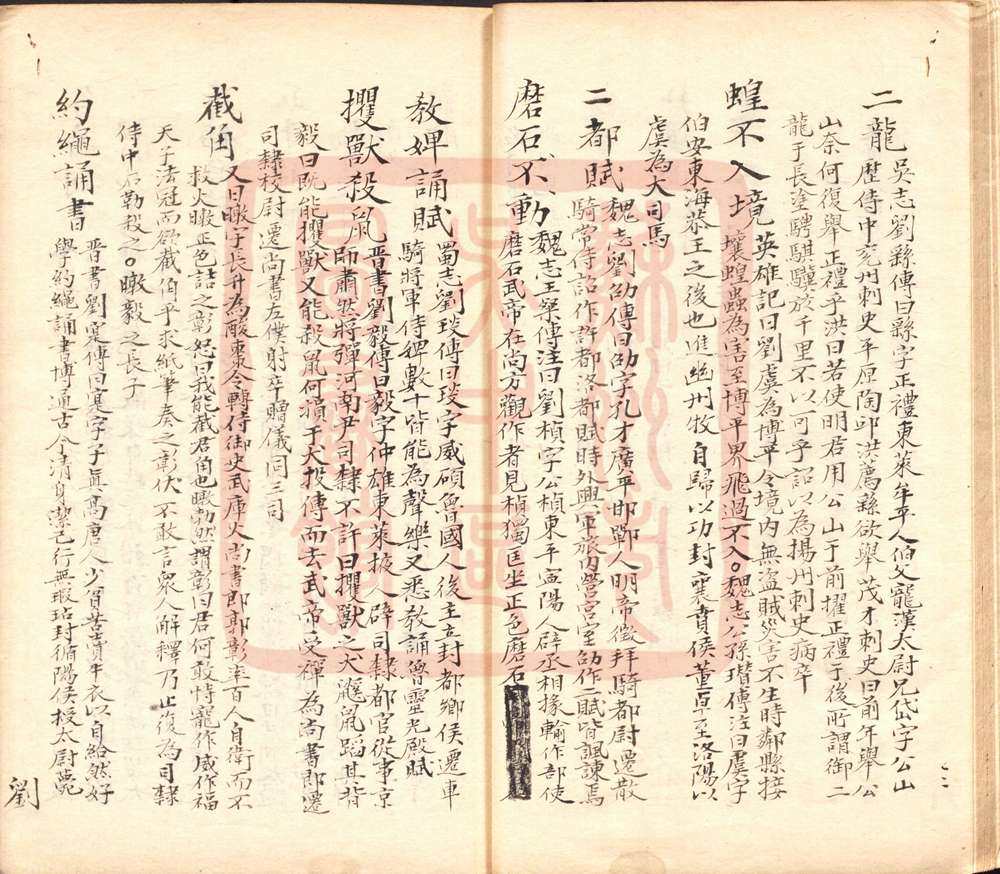 二龍 吳志劉繇傳曰繇字正禮東萊牟平人伯父寵漢太尉兄岱字公山
歷侍中兗州刺史平原陶邱洪薦繇欲舉茂才刺史曰前年舉公
山奈何復舉正禮乎洪曰若使明君用公山于前擢正禮于後所謂御二
龍于長塗騁騏驥於千里不以可乎詔以為揚州刺史病卒
蝗不入境 英雄記曰劉虞為博平令境內無盜賊災害不生時鄰縣接
壤蝗蟲為害至博平界飛過不入○魏志公孫瓚傳注曰虞字
伯安東海恭王之後也進幽州牧自歸以功封襄賁侯董卓至洛陽以
虞為大司馬
二都賦 魏志劉劭傳曰劭字孔才廣平邯鄲人明帝徵拜騎都尉遷散
騎常侍詔作許都洛都賦時外興軍旅內營宮室劭作二賦皆諷諫焉
磨石不動 魏志王粲傳注曰劉楨字公楨東平寧陽人辟丞相掾輸作部使
磨石武帝在尚方觀作者見楨獨匡坐正色磨石
教婢誦賦 蜀志劉琰傳曰琰字威碩魯國人後主立封都鄉侯遷車
騎將軍侍婢數十皆能為聲樂又悉教誦魯靈光殿賦
攫獸殺鼠 晋書劉毅傳曰毅字仲雄東萊掖人辟司隸都官從事京
師肅然將彈河南尹司隸不許曰攫獸之犬鼷鼠蹈其背
毅曰既能攫獸又能殺鼠何損于犬投傳而去武帝受禪為尚書郎遷
司隸校尉遷尚書左僕射卒贈儀同三司
截角 又曰暾字長升為酸棗令轉侍御史武庫火尚書郎郭彰率百人自衛而不
救火暾正色詰之彰怒曰我能截君角也暾勃然謂彰曰君何敢恃寵作威作福
天子法冠而欲截角乎求紙筆奏之彰伏不敢言眾人解釋乃止復為司隸
侍中石勒殺之○暾毅之長子
約繩誦書 晋書劉寔傳曰寔字子真高唐人少貧苦賣牛衣以自給然好
學約繩誦書博通古今清身潔己行無瑕玷封循陽侯授太尉薨
劉